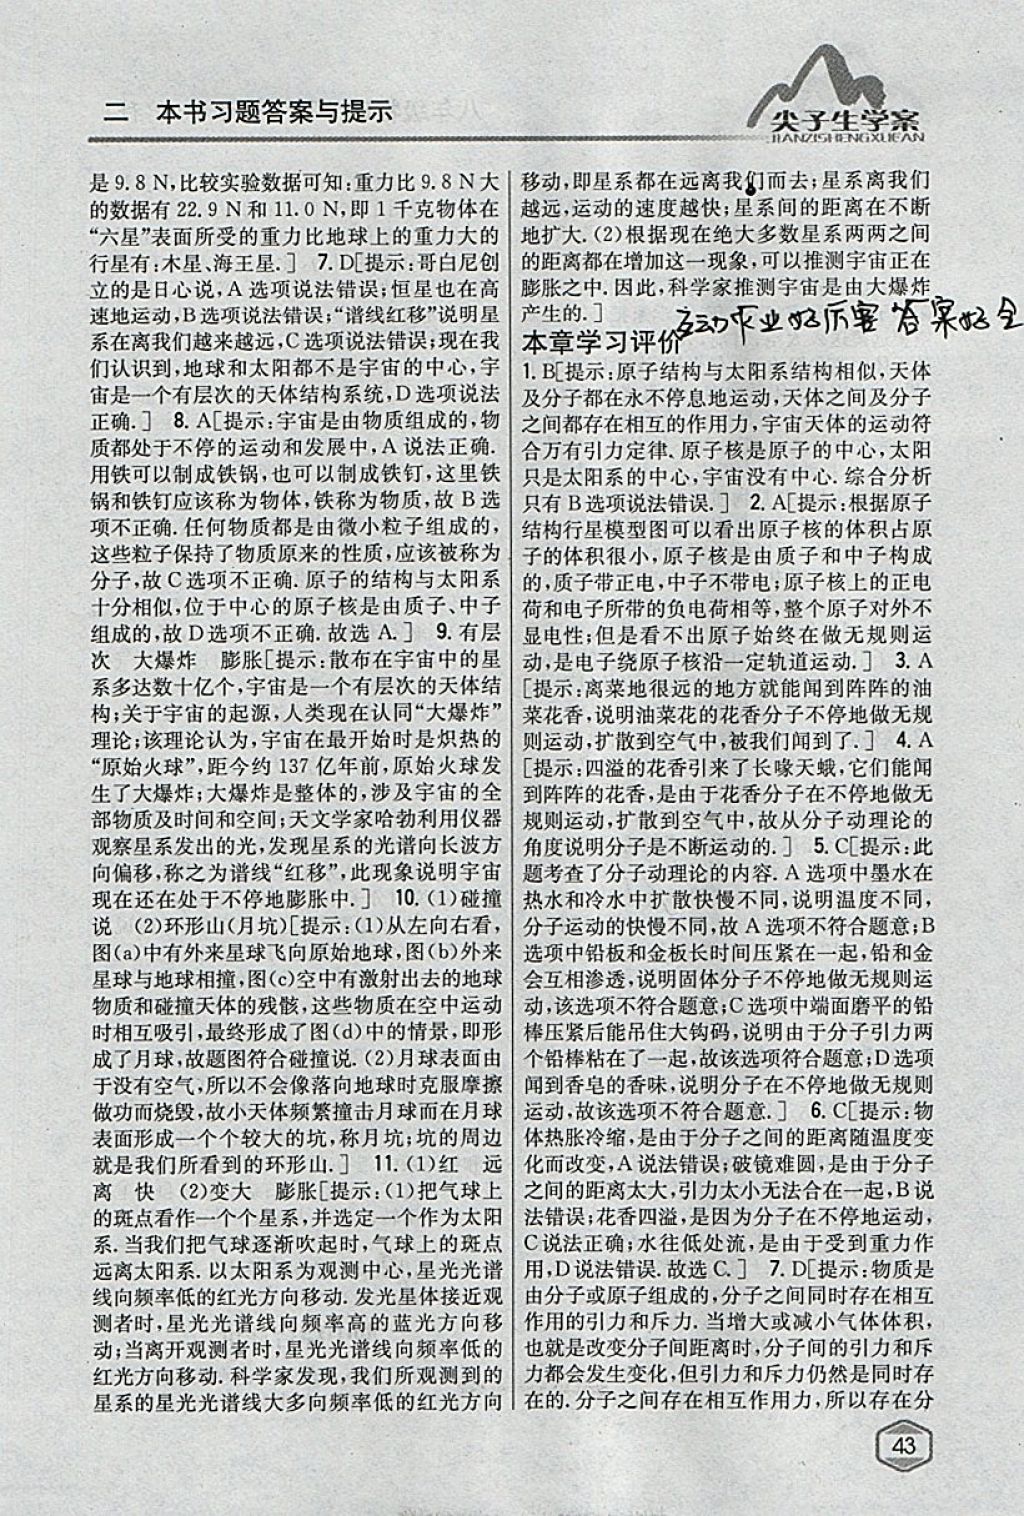 二 本书习题答案与提示
尖子生学案
JIANZISHENGXUEAN
是9.8 N,比较实验数据可知:重力比9.8 N大
的数据有22.9 N和11.0 N,即1千克物体在
“六星”表面所受的重力比地球上的重力大的
行星有:木星、海王星.] 7. D[提示:哥白尼创
立的是日心说,A选项说法错误;恒星也在高
速地运动,B选项说法错误;“谱线红移”说明星
系在离我们越来越远,C选项说法错误;现在我
们认识到,地球和太阳都不是宇宙的中心,宇
宙是一个有层次的天体结构系统,D选项说法
正确.] 8. A[提示:宇宙是由物质组成的,物
质都处于不停的运动和发展中,A说法正确.
用铁可以制成铁锅,也可以制成铁钉,这里铁
锅和铁钉应该称为物体,铁称为物质,故B选
项不正确.任何物质都是由微小粒子组成的,
这些粒子保持了物质原来的性质,应该被称为
分子,故C选项不正确.原子的结构与太阳系
十分相似,位于中心的原子核是由质子、中子
组成的,故D选项不正确.故选A.] 9. 有层
次 大爆炸 膨胀[提示:散布在宇宙中的星
系多达数十亿个,宇宙是一个有层次的天体结
构;关于宇宙的起源,人类现在认同“大爆炸”
理论;该理论认为,宇宙在最开始时是炽热的
“原始火球”,距今约137亿年前,原始火球发
生了大爆炸;大爆炸是整体的,涉及宇宙的全
部物质及时间和空间;天文学家哈勃利用仪器
观察星系发出的光,发现星系的光谱向长波方
向偏移,称之为谱线“红移”,此现象说明宇宙
现在还在处于不停地膨胀中.] 10. (1)碰撞
说 (2)环形山(月坑)[提示:(1)从左向右看,
图(a)中有外来星球飞向原始地球,图(b)外来
星球与地球相撞,图(c)空中有激射出去的地球
物质和碰撞天体的残骸,这些物质在空中运动
时相互吸引,最终形成了图(d)中的情景,即形
成了月球,故题图符合碰撞说.(2)月球表面由
于没有空气,所以不会像落向地球时克服摩擦
做功而烧毁,故小天体频繁撞击月球而在月球
表面形成一个个较大的坑,称月坑;坑的周边
就是我们所看到的环形山.] 11. (1)红 远
离 快 (2)变大 膨胀[提示:(1)把气球上
的斑点看作一个个星系,并选定一个作为太阳
系.当我们把气球逐渐吹起时,气球上的斑点
远离太阳系.以太阳系为观测中心,星光光谱
线向频率低的红光方向移动.发光星体接近观
测者时,星光光谱线向频率高的蓝光方向移
动;当离开观测者时,星光光谱线向频率低的
红光方向移动.科学家发现,我们所观测到的
星系的星光光谱线大多向频率低的红光方向
移动,即星系都在远离我们而去;星系离我们
越远,运动的速度越快;星系间的距离在不断
地扩大.(2)根据现在绝大多数星系两两之间
的距离都在增加这一现象,可以推测宇宙正在
膨胀之中.因此,科学家推测宇宙是由大爆炸
产生的.]
互动作业好厉害 答案好全
本章学习评价
1. B[提示:原子结构与太阳系结构相似,天体
及分子都在永不停息地运动,天体之间及分子
之间都存在相互的作用力,宇宙天体的运动符
合万有引力定律.原子核是原子的中心,太阳
只是太阳系的中心,宇宙没有中心.综合分析
只有B选项说法错误.] 2. A[提示:根据原子
结构行星模型图可以看出原子核的体积占原
子的体积很小,原子核是由质子和中子构成
的,质子带正电,中子不带电;原子核上的正电
荷和电子所带的负电荷相等,整个原子对外不
显电性;但是看不出原子始终在做无规则运
动,是电子绕原子核沿一定轨道运动.] 3. A
[提示:离菜地很远的地方就能闻到阵阵的油
菜花香,说明油菜花的花香分子不停地做无规
则运动,扩散到空气中,被我们闻到了.] 4. A
[提示:四溢的花香引来了长喙天蛾,它们能闻
到阵阵的花香,是由于花香分子在不停地做无
规则运动,扩散到空气中,故从分子动理论的
角度说明分子是不断运动的.] 5. C[提示:此
题考查了分子动理论的内容.A选项中墨水在
热水和冷水中扩散快慢不同,说明温度不同,
分子运动的快慢不同,故A选项不符合题意;B
选项中铅板和金板长时间压紧在一起,铅和金
会互相渗透,说明固体分子不停地做无规则运
动,该选项不符合题意;C选项中端面磨平的铅
棒压紧后能吊住大钩码,说明由于分子引力两
个铅棒粘在了一起,故该选项符合题意;D选项
闻到香皂的香味,说明分子在不停地做无规则
运动,故该选项不符合题意.] 6. C[提示:物
体热胀冷缩,是由于分子之间的距离随温度变
化而改变,A说法错误;破镜难圆,是由于分子
之间的距离太大,引力太小无法合在一起,B说
法错误;花香四溢,是因为分子在不停地运动,
C说法正确;水往低处流,是由于受到重力作
用,D说法错误.故选C.] 7. D[提示:物质是
由分子或原子组成的,分子之间同时存在相互
作用的引力和斥力.当增大或减小气体体积,
也就是改变分子间距离时,分子间的引力和斥
力都会发生变化,但引力和斥力仍然是同时存
在的.分子之间存在相互作用力,所以存在分
43